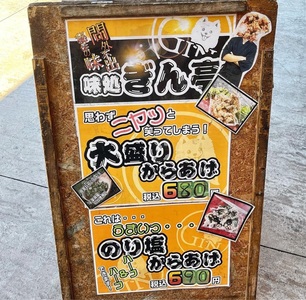 味処ぎん亭
思わずニヤッと
笑ってしまう！
大盛り
からあげ
税込680円
これは・・・
うまいっ・・・
のり塩
からあげ
税込690円